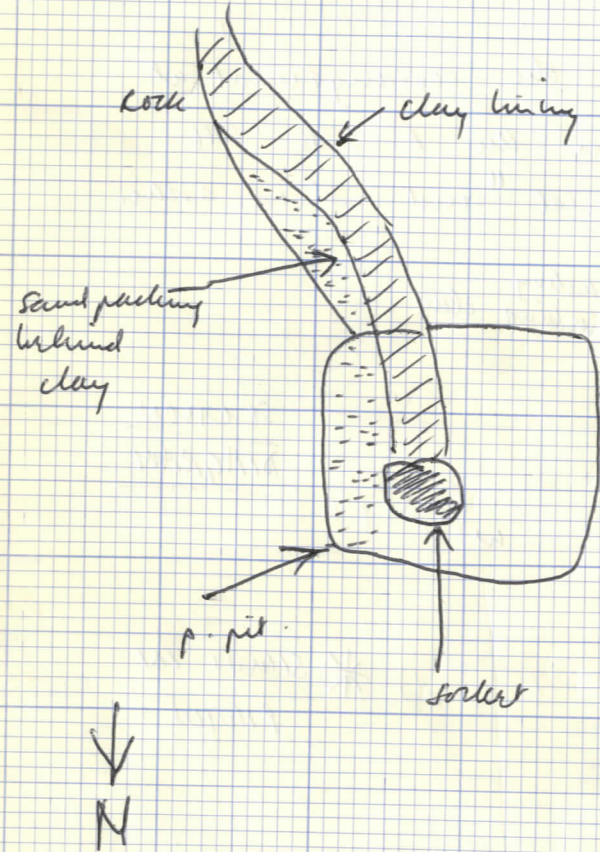 Rock
clay lining
sand packing
behind
clay
p. pit.
socket
N